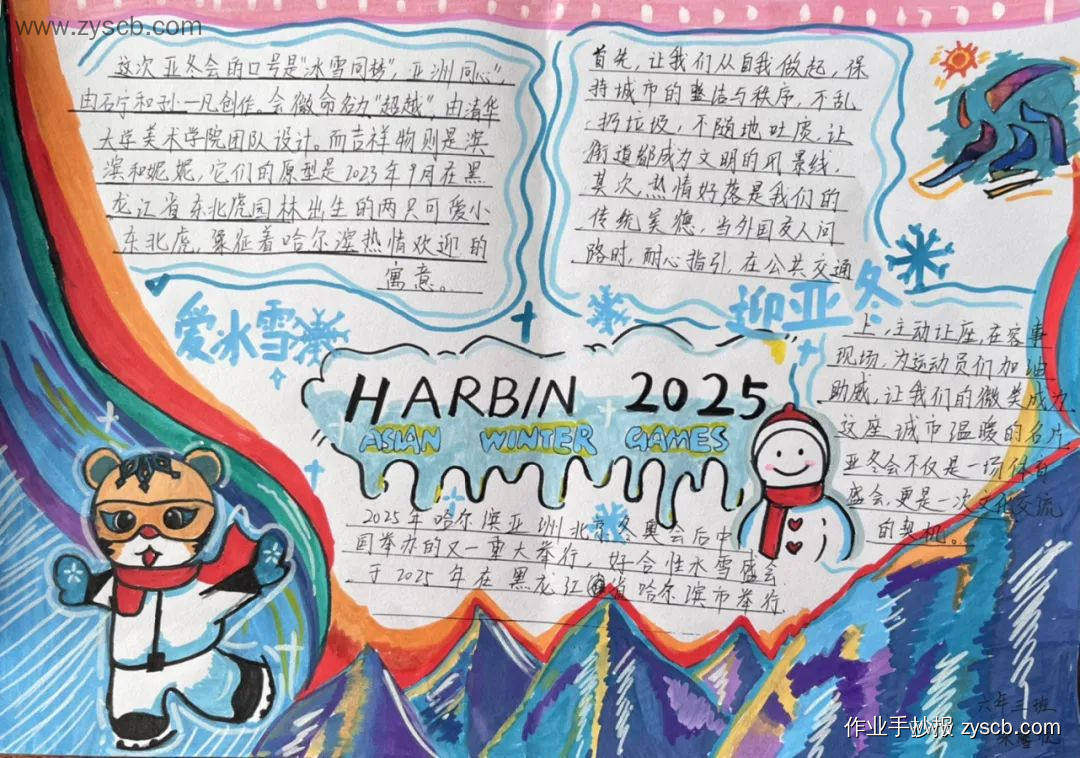 www.zyscb.com
这次亚冬会的口号是"冰雪同梦，亚洲同心"
由石行和孙一凡创作。会徽命名为"超越"，由清华
大学美术学院团队设计。而吉祥物则是滨
滨和妮妮，它们的原型是2023年9月在黑
龙江省东北虎园林出生的两只可爱小
东北虎，象征着哈尔滨热情欢迎的
寓意。
首先，让我们从自我做起，保
持城市的整洁与秩序，不乱
扔垃圾，不随地吐质，让
街道都成为文明的风景线，
其次，热情好落是我们的
传统美德，当外国友人问
路时，耐心指引，在公共交通
上，主动让座，在客事
现场，为运动员们加油
助威，让我们的微笑成为
这座城市温暖的名片
亚冬会不仅是一场体育
盛会，更是一次文化交流
的契机。
爱冰雪
迎亚冬
HARBIN 2025
ASIAN WINTER GAMES
2025年哈尔滨亚洲北京冬奥会后中
国举办的又一重大举行，好合性冰雪盛会
于2025年在黑龙江省哈尔滨市举行.
六年三班
作业手抄报 zyscb.com